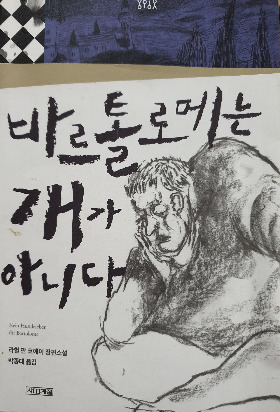 바르톨로메는
개가
아니다
Kein Hundeleben
für Bartolomé
라헐 판 코에이 장편소설
박종대 옮김
사계절